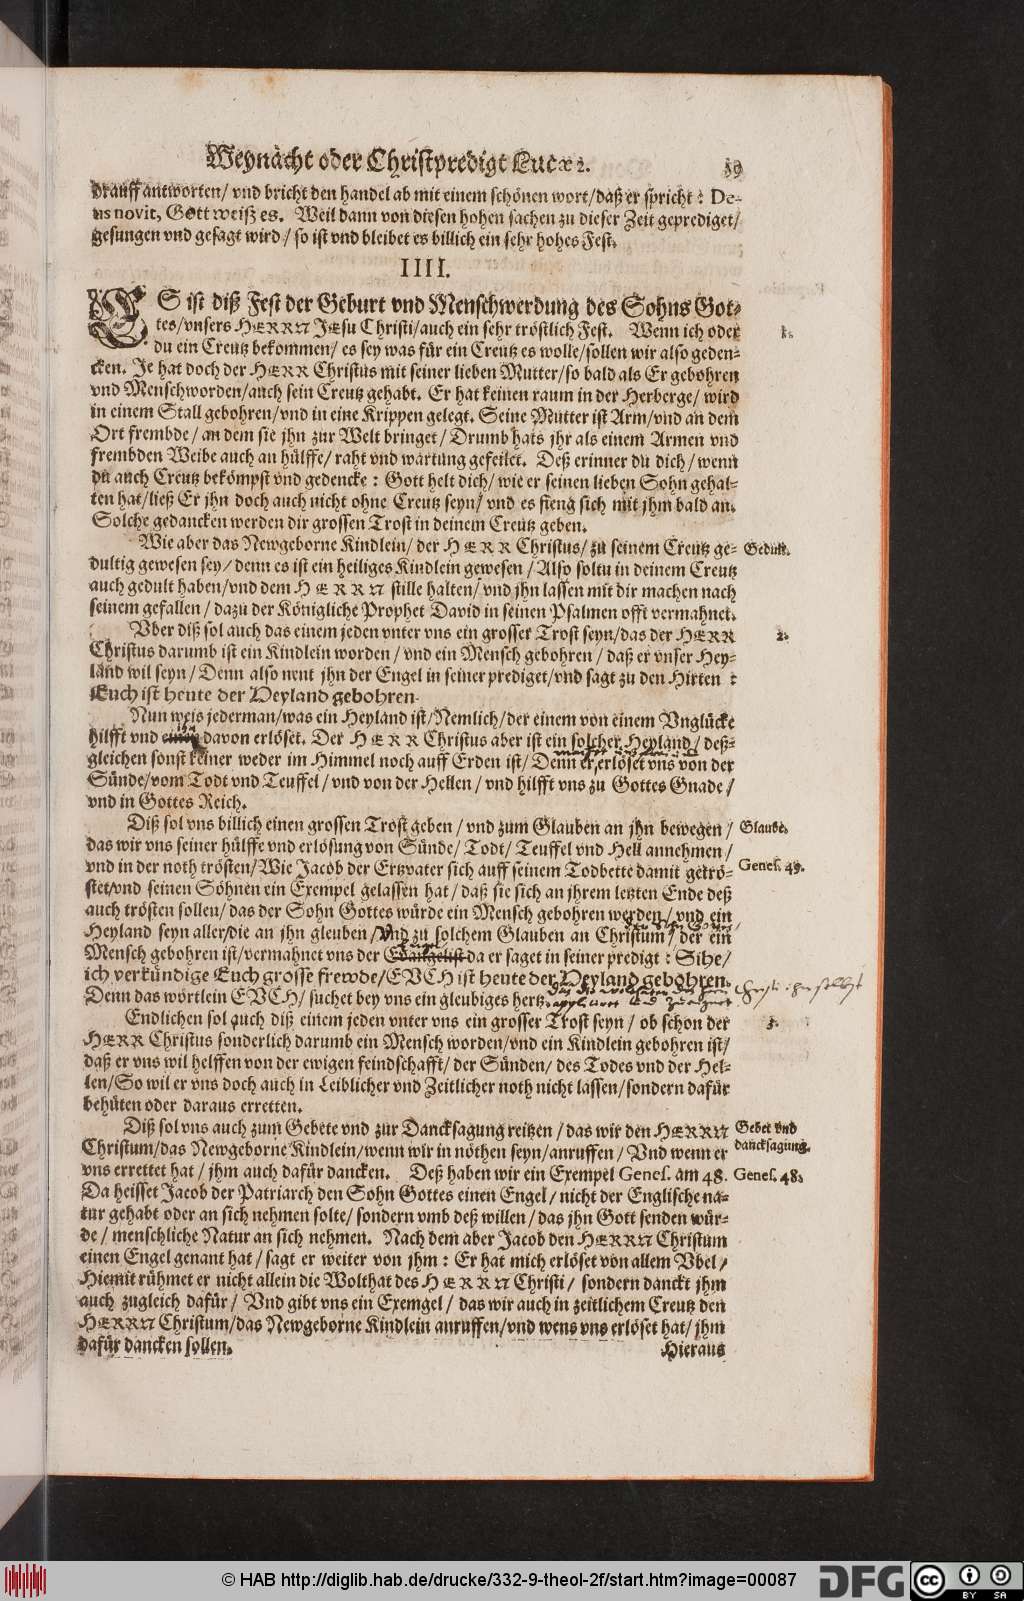 Weynächt oder Christpredigt Lucæ 2. 59
drauff antworten/ vnd bricht den handel ab mit einem schönen wort/daß er spricht: De-
us novit, Gott weiß es. Weil dann von diesen hohen sachen zu dieser Zeit geprediget/
gesungen vnd gesagt wird/ so ist vnd bleibet es billich ein sehr hohes Fest.
IIII.
ES ist diß Fest der Geburt vnd Menschwerdung des Sohns Got-
tes/vnsers HERRN JEsu Christi/auch ein sehr tröstlich Fest. Wenn ich oder
1.
du ein Creutz bekommen/ es sey was für ein Creutz es wolle/sollen wir also geden-
cken. Je hat doch der HERR Christus mit seiner lieben Mutter/so bald als Er gebohren
vnd Menschworden/auch sein Creutz gehabt. Er hat keinen raum in der Herberge/ wird
in einem Stall gebohren/vnd in eine Krippen gelegt. Seine Mutter ist Arm/vnd an dem
Ort frembde/ an dem sie jhn zur Welt bringet/ Drumb hats jhr als einem Armen vnd
frembden Weibe auch an hülffe/ raht vnd wartung gefeilet. Deß erinner du dich/ wenn
du auch Creutz bekömpst vnd gedencke: Gott helt dich/ wie er seinen lieben Sohn gehal-
ten hat/ließ Er jhn doch auch nicht ohne Creutz seyn/ vnd es fieng sich mit jhm bald an.
Solche gedancken werden dir grossen Trost in deinem Creutz geben.
Wie aber das Newgeborne Kindlein/ der HERR Christus/ zu seinem Creutz ge-
Gedult.
dultig gewesen sey/ denn es ist ein heiliges Kindlein gewesen/ Also soltu in deinem Creutz
auch gedult haben/vnd dem HERRN stille halten/ vnd jhn lassen mit dir machen nach
seinem gefallen/ dazu der Königliche Prophet David in seinen Psalmen offt vermahnet.
Vber diß sol auch das einem jeden vnter vns ein grosser Trost seyn/das der HERR
2.
Christus darumb ist ein Kindlein worden/ vnd ein Mensch gebohren/ daß er vnser Hey-
land wil seyn/ Denn also nent jhn der Engel in seiner prediget/vnd sagt zu den Hirten:
Euch ist heute der Heyland gebohren.
Nun weis jederman/was ein Heyland ist/Nemlich/der einem von einem Vnglücke
hilfft vnd einen davon erlöset. Der HERR Christus aber ist ein solcher Heyland/ deß-
gleichen sonst keiner weder im Himmel noch auff Erden ist/ Denn er erlöset vns von der
Sünde/vom Todt vnd Teuffel/ vnd von der Hellen/ vnd hilfft vns zu Gottes Gnade/
vnd in Gottes Reich.
Diß sol vns billich einen grossen Trost geben/ vnd zum Glauben an jhn bewegen/
Glaube.
das wir vns seiner hülffe vnd erlösung von Sünde/ Todt/ Teuffel vnd Hell annehmen/
vnd in der noth trösten/Wie Jacob der Ertzvater sich auff seinem Todbette damit getrö-
Genes. 49.
stet/vnd seinen Söhnen ein Exempel gelassen hat/ daß sie sich an jhrem letzten Ende deß
auch trösten sollen/ das der Sohn Gottes würde ein Mensch gebohren werden/ vnd ein
Heyland seyn aller/die an jhn gleuben/Vnd zu solchem Glauben an Christum/ der ein
Mensch gebohren ist/vermahnet vns der Evangelist da er saget in seiner predigt: Sihe/
ich verkündige Euch grosse frewde/EVCH ist heute der Heyland gebohren.
Denn das wörtlein EVCH/ suchet bey vns ein gleubiges hertz.
Endlichen sol auch diß einem jeden vnter vns ein grosser Trost seyn/ ob schon der
3.
HERR Christus sonderlich darumb ein Mensch worden/vnd ein Kindlein gebohren ist/
daß er vns wil helffen von der ewigen feindschafft/ der Sünden/ des Todes vnd der Hel-
len/So wil er vns doch auch in Leiblicher vnd Zeitlicher noth nicht lassen/sondern dafür
behüten oder daraus erretten.
Diß sol vns auch zum Gebete vnd zur Dancksagung reitzen/ das wir den HERRN
Gebet vnd
Christum/das Newgeborne Kindlein/wenn wir in nöthen seyn/anruffen/ Vnd wenn er
dancksagung.
vns errettet hat/ jhm auch dafür dancken. Deß haben wir ein Exempel Genes. am 48.
Genes. 48.
Da heisset Jacob der Patriarch den Sohn Gottes einen Engel/ nicht der Englische na-
tur gehabt oder an sich nehmen solte/ sondern vmb deß willen/ das jhn Gott senden wür-
de/ menschliche Natur an sich nehmen. Nach dem aber Jacob den HERRN Christum
einen Engel genant hat/ sagt er weiter von jhm: Er hat mich erlöset von allem Vbel/
Hiemit rühmet er nicht allein die Wolthat des HERRN Christi/ sondern danckt jhm
auch zugleich dafür/ Vnd gibt vns ein Exemgel/ das wir auch in zeitlichem Creutz den
HERRN Christum/das Newgeborne Kindlein anruffen/vnd wens vns erlöset hat/ jhm
dafür dancken sollen.
Hieraus
© HAB http://diglib.hab.de/drucke/332-9-theol-2f/start.htm?image=00087
DFG
CC BY SA